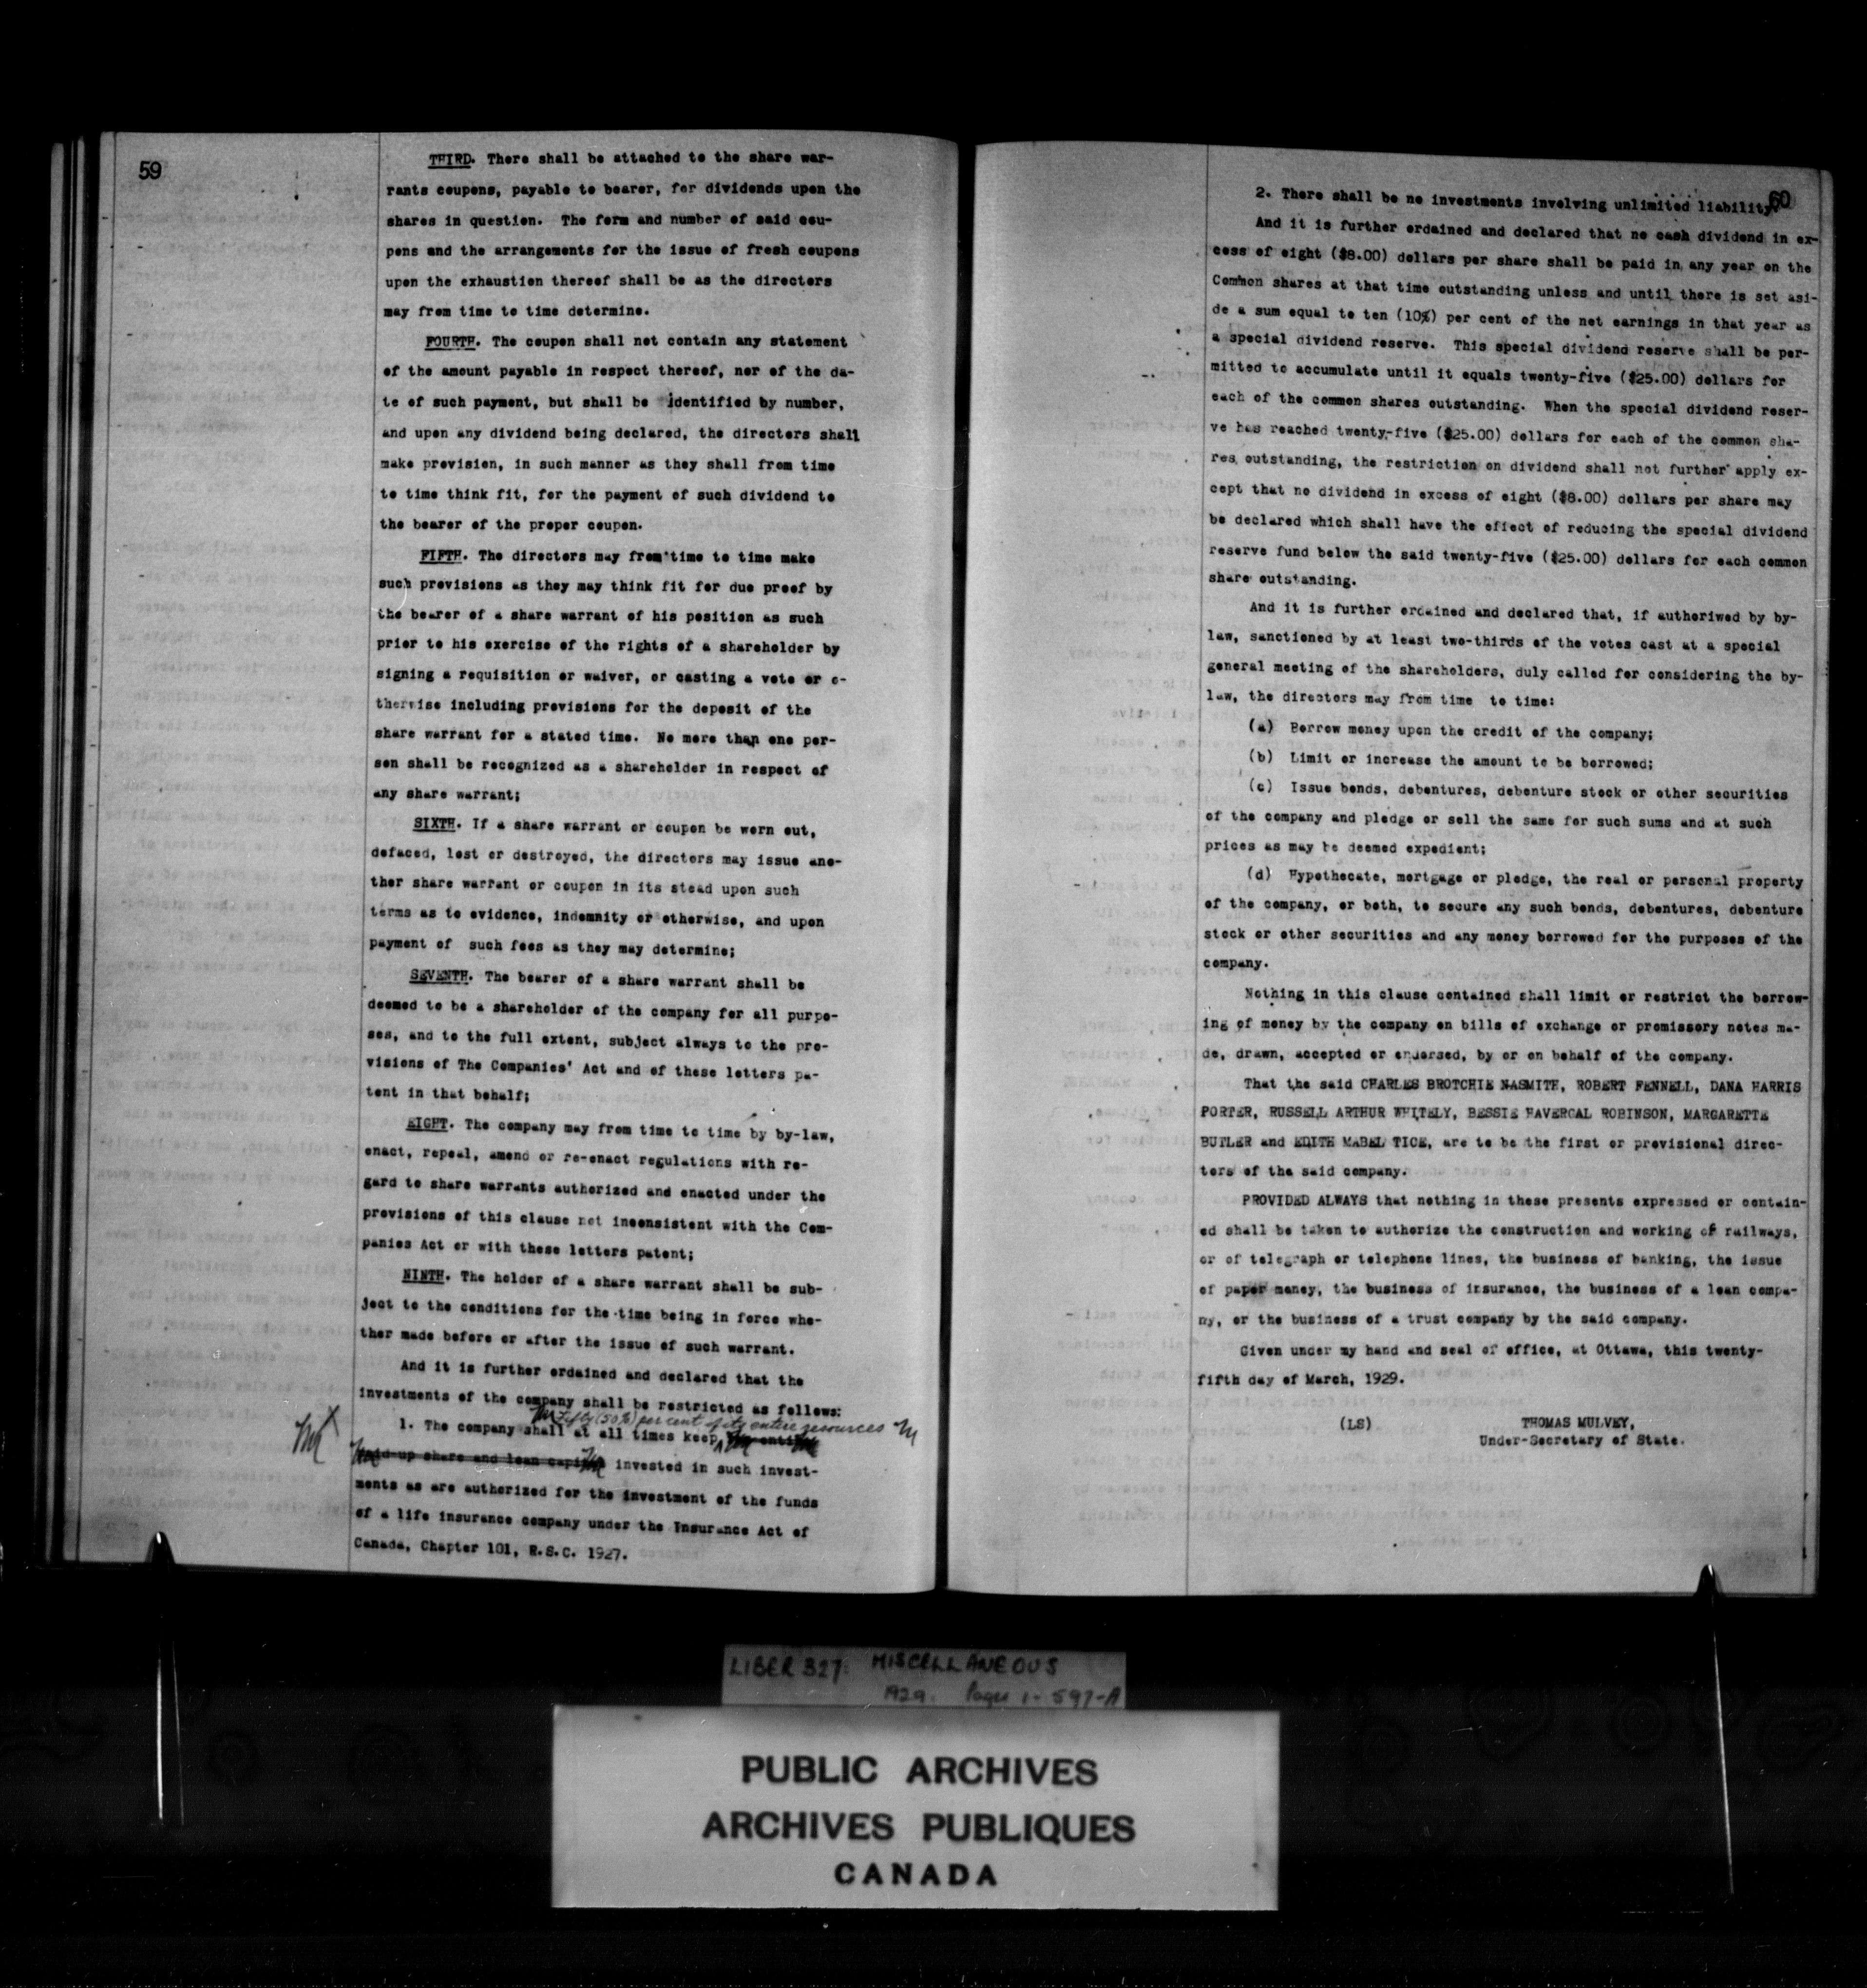 59
THIRD. There shall be attached to the share war-
rants coupons, payable to bearer, for dividends upon the
shares in question. The form and number of said cou-
pons and the arrangements for the issue of fresh coupons
upon the exhaustion thereof shall be as the directors
may from time to time determine.
FOURTH. The coupon shall not contain any statement
of the amount payable in respect thereof, nor of the da-
te of such payment, but shall be identified by number,
and upon any dividend being declared, the directors shall
make provision, in such manner as they shall from time
to time think fit, for the payment of such dividend to
the bearer of the proper coupon.
FIFTH. The directors may from time to time make
such provisions as they may think fit for due proof by
the bearer of a share warrant of his position as such
prior to his exercise of the rights of a shareholder by
signing a requisition or waiver, or casting a vote or o-
therwise including provisions for the deposit of the
share warrant for a stated time. No more than one per-
son shall be recognized as a shareholder in respect of
any share warrant;
SIXTH. If a share warrant or coupon be worn out,
defaced, lost or destroyed, the directors may issue ano-
ther share warrant or coupon in its stead upon such
terms as to evidence, indemnity or otherwise, and upon
payment of such fees as they may determine;
SEVENTH. The bearer of a share warrant shall be
deemed to be a shareholder of the company for all purpo-
ses, and to the full extent, subject always to the pro-
visions of The Companies' Act and of these letters pa-
tent in that behalf;
EIGHT. The company may from time to time by by-law,
enact, repeal, amend or re-enact regulations with re-
gard to share warrants authorized and enacted under the
provisions of this clause not inconsistent with the Com-
panies Act or with these letters patent;
NINTH. The holder of a share warrant shall be sub-
ject to the conditions for the time being in force whe-
ther made before or after the issue of such warrant.
And it is further ordained and declared that the
investments of the company shall be restricted as follows:
M Fifty (50%) per cent of its entire resources M
1. The company shall at all times keep
M paid-up share and loan capital invested in such invest-
ments as are authorized for the investment of the funds
of a life insurance company under the Insurance Act of
Canada, Chapter 101, R.S.C. 1927.
60
2. There shall be no investments involving unlimited liability.
And it is further ordained and declared that no cash dividend in ex-
cess of eight ($8.00) dollars per share shall be paid in any year on the
Common shares at that time outstanding unless and until there is set asi-
de a sum equal to ten (10%) per cent of the net earnings in that year as
a special dividend reserve. This special dividend reserve shall be per-
mitted to accumulate until it equals twenty-five ($25.00) dollars for
each of the common shares outstanding. When the special dividend reser-
ve has reached twenty-five ($25.00) dollars for each of the common sha-
res outstanding, the restriction on dividend shall not further apply ex-
cept that no dividend in excess of eight ($8.00) dollars per share may
be declared which shall have the effect of reducing the special dividend
reserve fund below the said twenty-five ($25.00) dollars for each common
share outstanding.
And it is further ordained and declared that, if authoriwed by by-
law, sanctioned by at least two-thirds of the votes cast at a special
general meeting of the shareholders, duly called for considering the by-
law, the directors may from time to time:
(a) Borrow money upon the credit of the company;
(b) Limit or increase the amount to be borrowed;
(c) Issue bonds, debentures, debenture stock or other securities
of the company and pledge or sell the same for such sums and at such
prices as may be deemed expedient;
(d) Hypothecate, mortgage or pledge, the real or personal property
of the company, or both, to secure any such bonds, debentures, debenture
stock or other securities and any money borrowed for the purposes of the
company.
Nothing in this clause contained shall limit or restrict the borrow-
ing of money by the company on bills of exchange or promissory notes ma-
de, drawn, accepted or endorsed, by or on behalf of the company.
That the said CHARLES BROTCHIE NASMITH, ROBERT FENNELL, DANA HARRIS
PORTER, RUSSELL ARTHUR WHITELY, BESSIE HAVERGAL ROBINSON, MARGARETTE
BUTLER and EDITH MABEL TICE, are to be the first or provisional direc-
tors of the said company.
PROVIDED ALWAYS that nothing in these presents expressed or contain-
ed shall be taken to authorize the construction and working of railways,
or of telegraph or telephone lines, the business of banking, the issue
of paper money, the business of insurance, the business of a loan compa-
ny, or the business of a trust company by the said company.
Given under my hand and seal of office, at Ottawa, this twenty-
fifth day of March, 1929.
(LS) THOMAS MULVEY,
Under-Secretary of State.
LIBER 327: MISCELLANEOUS
1929. Pages 1-597-A
PUBLIC ARCHIVES
ARCHIVES PUBLIQUES
CANADA